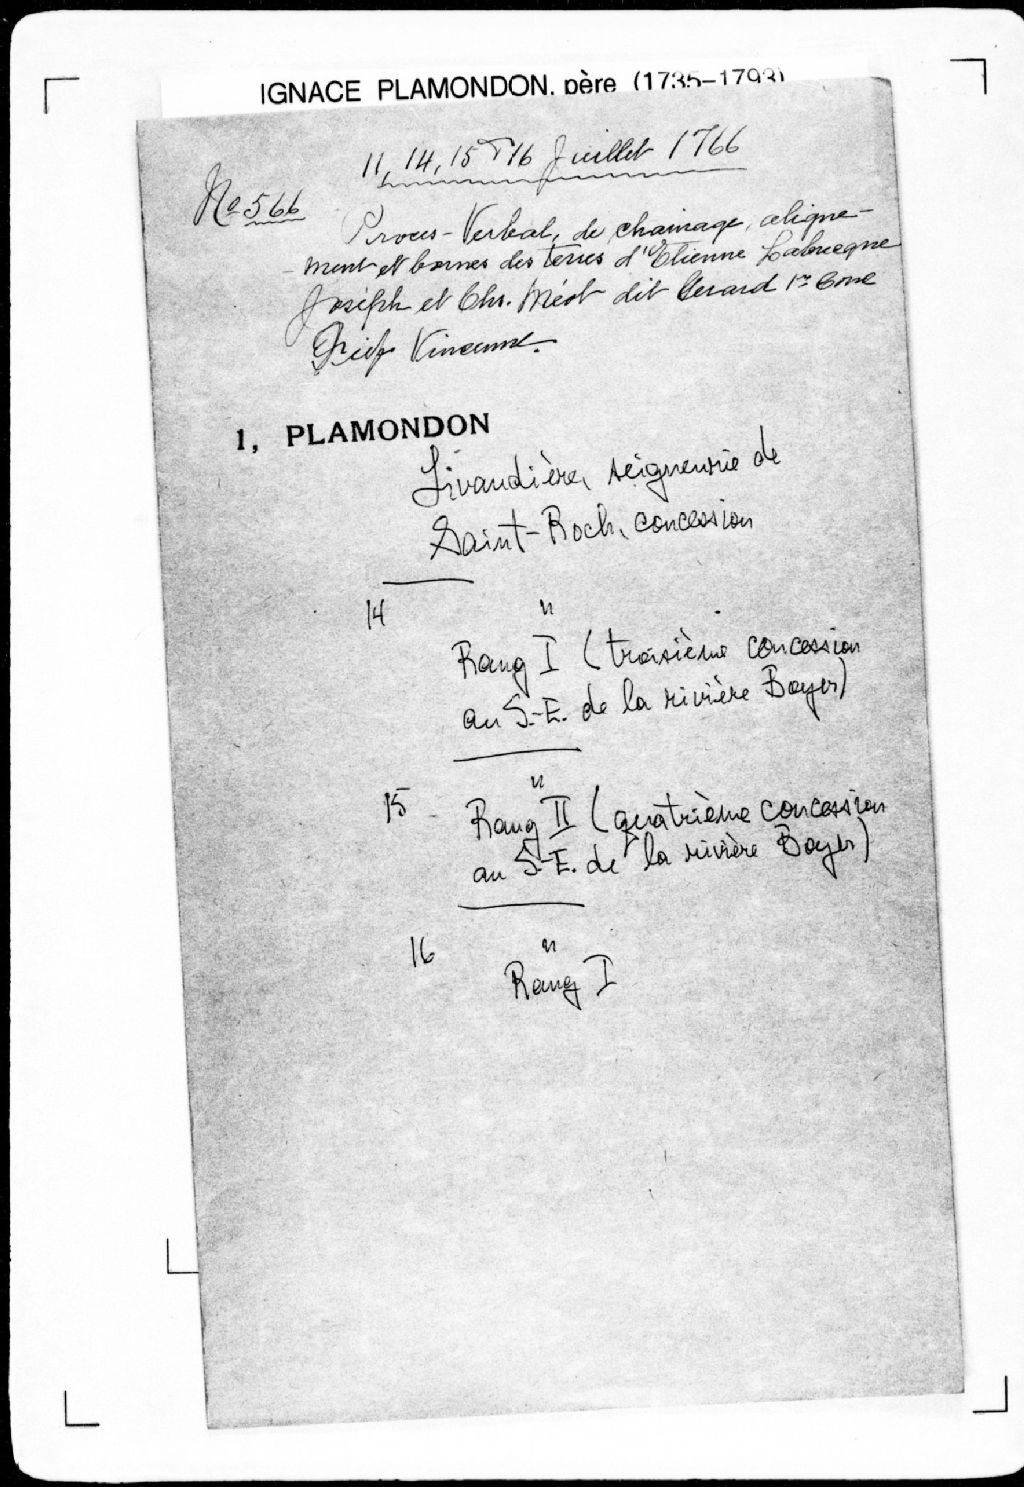 IGNACE PLAMONDON, père (1735-1793)
11, 14, 15 & 16 Juillet 1766
No 566
Proces-Verbal, de chainage, aligne-
-ment et bornes des terres d'Etienne Labrecque
Joséph et Chs. Méot dit Gerard 1re Conc
Fief Vincenne.
1, PLAMONDON
Livaudière, seigneurie de
Saint-Roch, concession
14 "
Rang I (troisième concession
au S.-E. de la rivière Boyer)
15 "
Rang II (quatrième concession
au S.-E. de la rivière Boyer)
16 "
Rang I